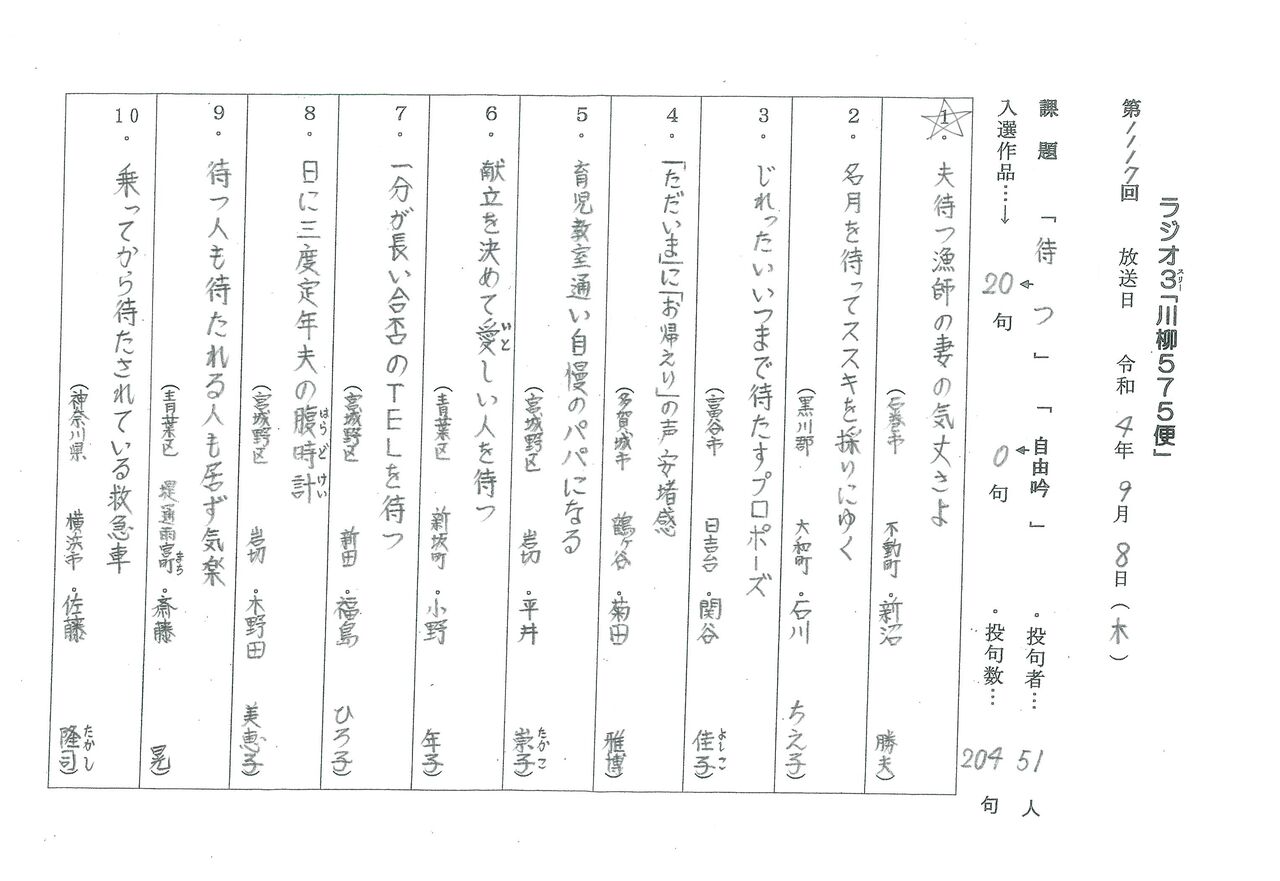 ラジオ3「川柳575便」
スリー
第1117回 放送日 令和4年9月8日(木)
課題 「待つ」 「自由吟」 ・投句者…51人
入選作品…→ 20句 0句 ・投句数…204句
1. 夫待つ漁師の妻の気丈さよ
(石巻市 不動町・新沼 勝夫)
2. 名月を待ってススキを採りにゆく
(黒川郡 大和町・石川 ちえ子)
3. じれったいいつまで待たすプロポーズ
(富谷市 日吉台・関谷 佳子)
よしこ
4. 「ただいま」に「お帰えり」の声安堵感
(多賀城市 鶴ヶ谷・菊田 雅博)
5. 育児教室通い自慢のパパになる
(宮城野区 岩切・平井 崇子)
たかこ
6. 献立を決めて愛しい人を待つ
いと
(青葉区 新坂町・小野 年子)
7. 一分が長い合否のTELを待つ
(宮城野区 新田・福島 ひろ子)
8. 日に三度定年夫の腹時計
はらどけい
(宮城野区 岩切・木野田 美恵子)
9. 待つ人も待たれる人も居ず気楽
(青葉区 堤通雨宮町・斎藤 晃)
まち
10. 乗ってから待たされている救急車
(神奈川県 横浜市・佐藤 隆司)
たかし